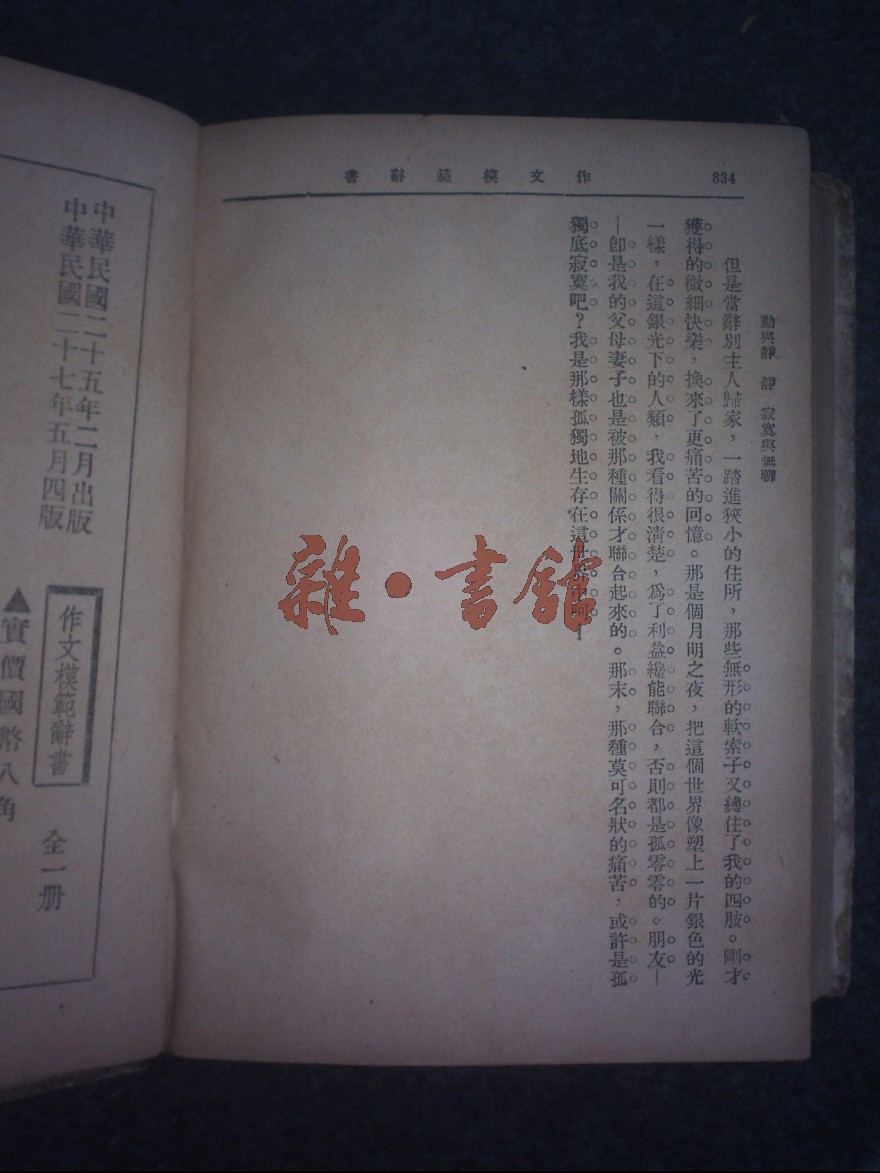 作文模範辭書
834
動與靜 靜 寂寞與無聊
但是當辭別主人歸家，一踏進狹小的住所，那些無形的軟索子又縛住了我的四肢。剛才
獲得的微細快樂，換來了更痛苦的回憶。那是個月明之夜，把這個世界像塑上一片銀色的光
一樣，在這銀光下的人類，我看得很清楚，爲了利益纔能聯合，否則都是孤零零的。朋友—
—卽是我的父母妻子也是被那種關係才聯合起來的。那末，那種莫可名狀的痛苦，或許是孤
獨底寂寞吧？我是那樣孤獨地生存在這世
中華民國二十五年二月出版
中華民國二十七年五月四版
作文模範辭書 全一册
▲實價國幣八角
雜·書館